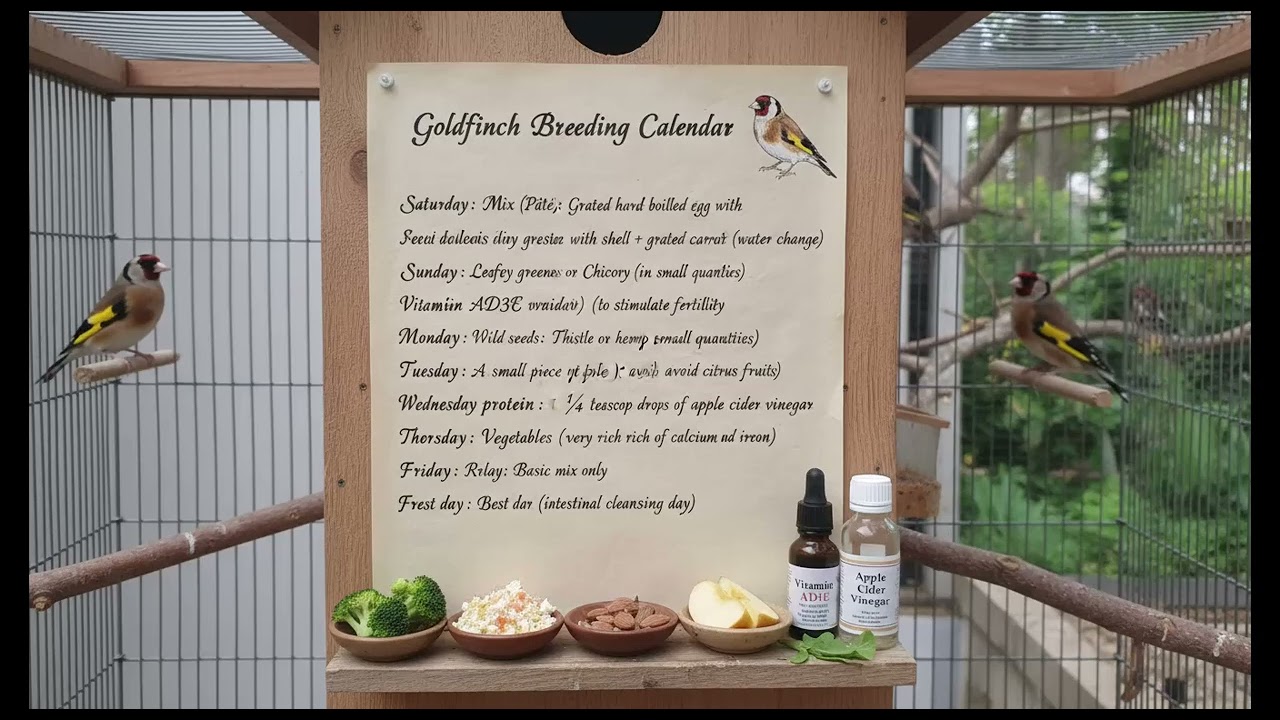 Goldfinch Breeding Calendar
Saturday: Mix (Pâté,: Grated hard boilled egg with
with shell + grated carrot (water change)
Sunday: Leafey greenes or Chicory (in small quanties)
Vitamiin AD3E (to stimulate fertility
Monday: Wild seeds: Thistle or hemp quantties)
Tuesday: A small piece avoid citrus fruits)
Wednesday protein: 1/4 teascop drops of apple cider vinegar
Thorsday: Vegetables (very rich rich of calcium ad ireon)
Friday: Rrlay: Basic mix only
Frest day: Best dar (intestinal cleansing day)
Vitamine
ADIE
Apple
Clder
Vinegar